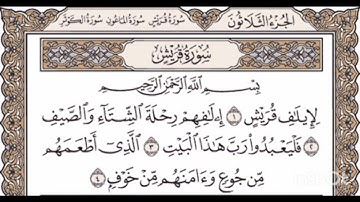 الجزء الثلاثون
سورة قريش سورة الماعون سورة الكوثر
سُورَةُ قُرَيْشٍ
بِسْمِ اللَّهِ الرَّحْمَٰنِ الرَّحِيمِ
لِإِيلَٰفِ قُرَيْشٍ ١ إِۦلَٰفِهِمْ رِحْلَةَ الشِّتَآءِ وَالصَّيْفِ
٢ فَلْيَعْبُدُوا۟ رَبَّ هَٰذَا الْبَيْتِ ٣ الَّذِىٓ أَطْعَمَهُم
مِّن جُوعٍ وَءَامَنَهُم مِّنْ خَوْفٍ ٤